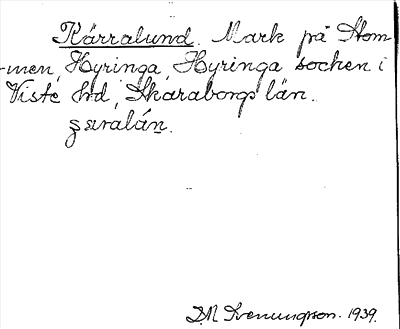 Kärralund. Mark på Hom-
men, Hyringa, Hyringa socken i
Viste hd, Skaraborgs län.
D.N. Svenungsson. 1939.